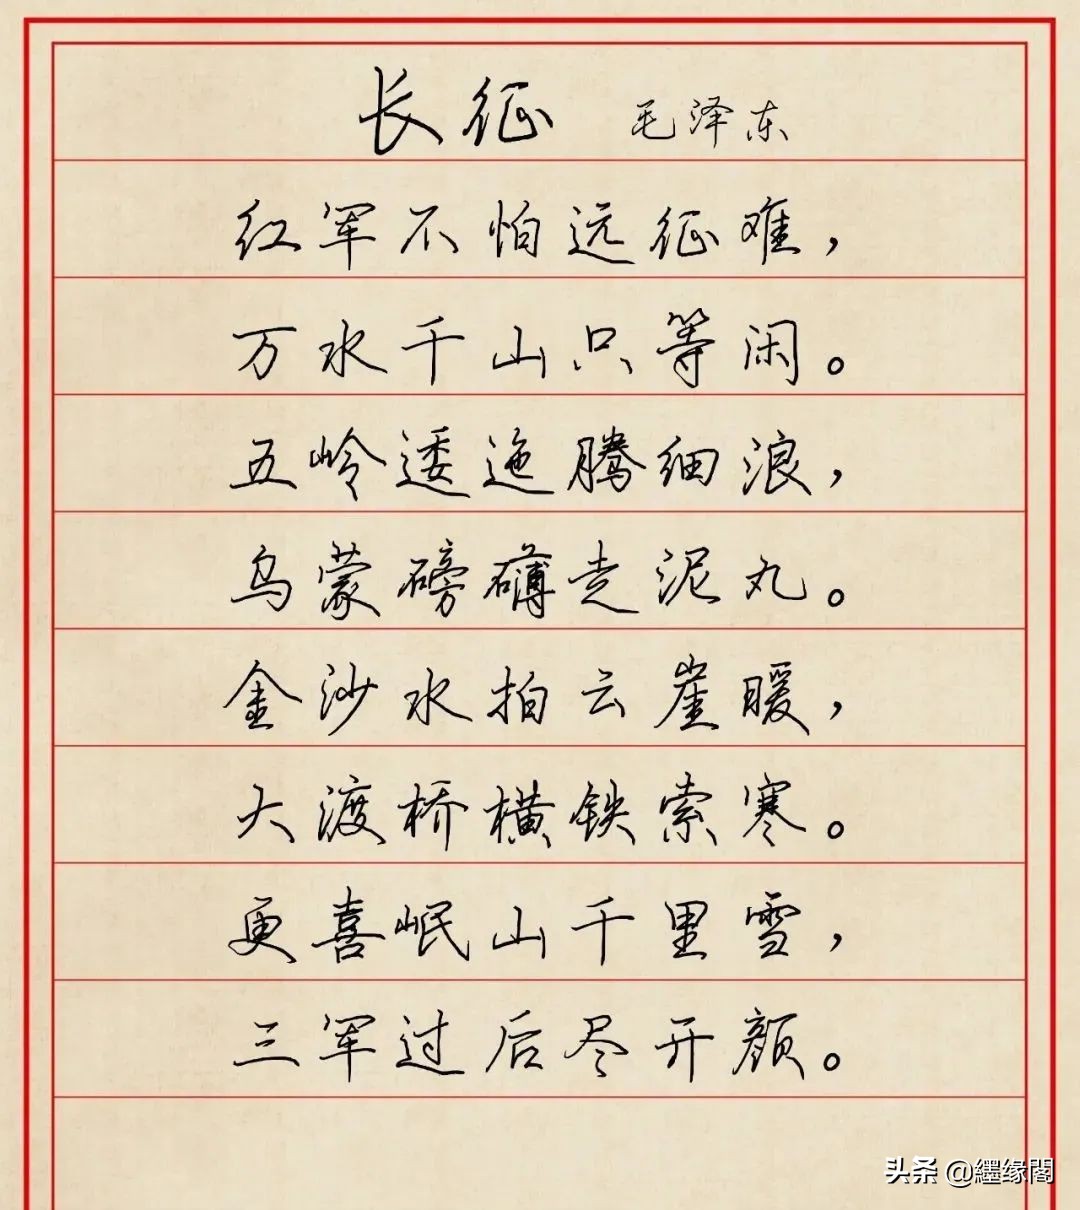 长征 毛泽东
红军不怕远征难，
万水千山只等闲。
五岭逶迤腾细浪，
乌蒙磅礴走泥丸。
金沙水拍云崖暖，
大渡桥横铁索寒。
更喜岷山千里雪，
三军过后尽开颜。
头条 @纆缘閣